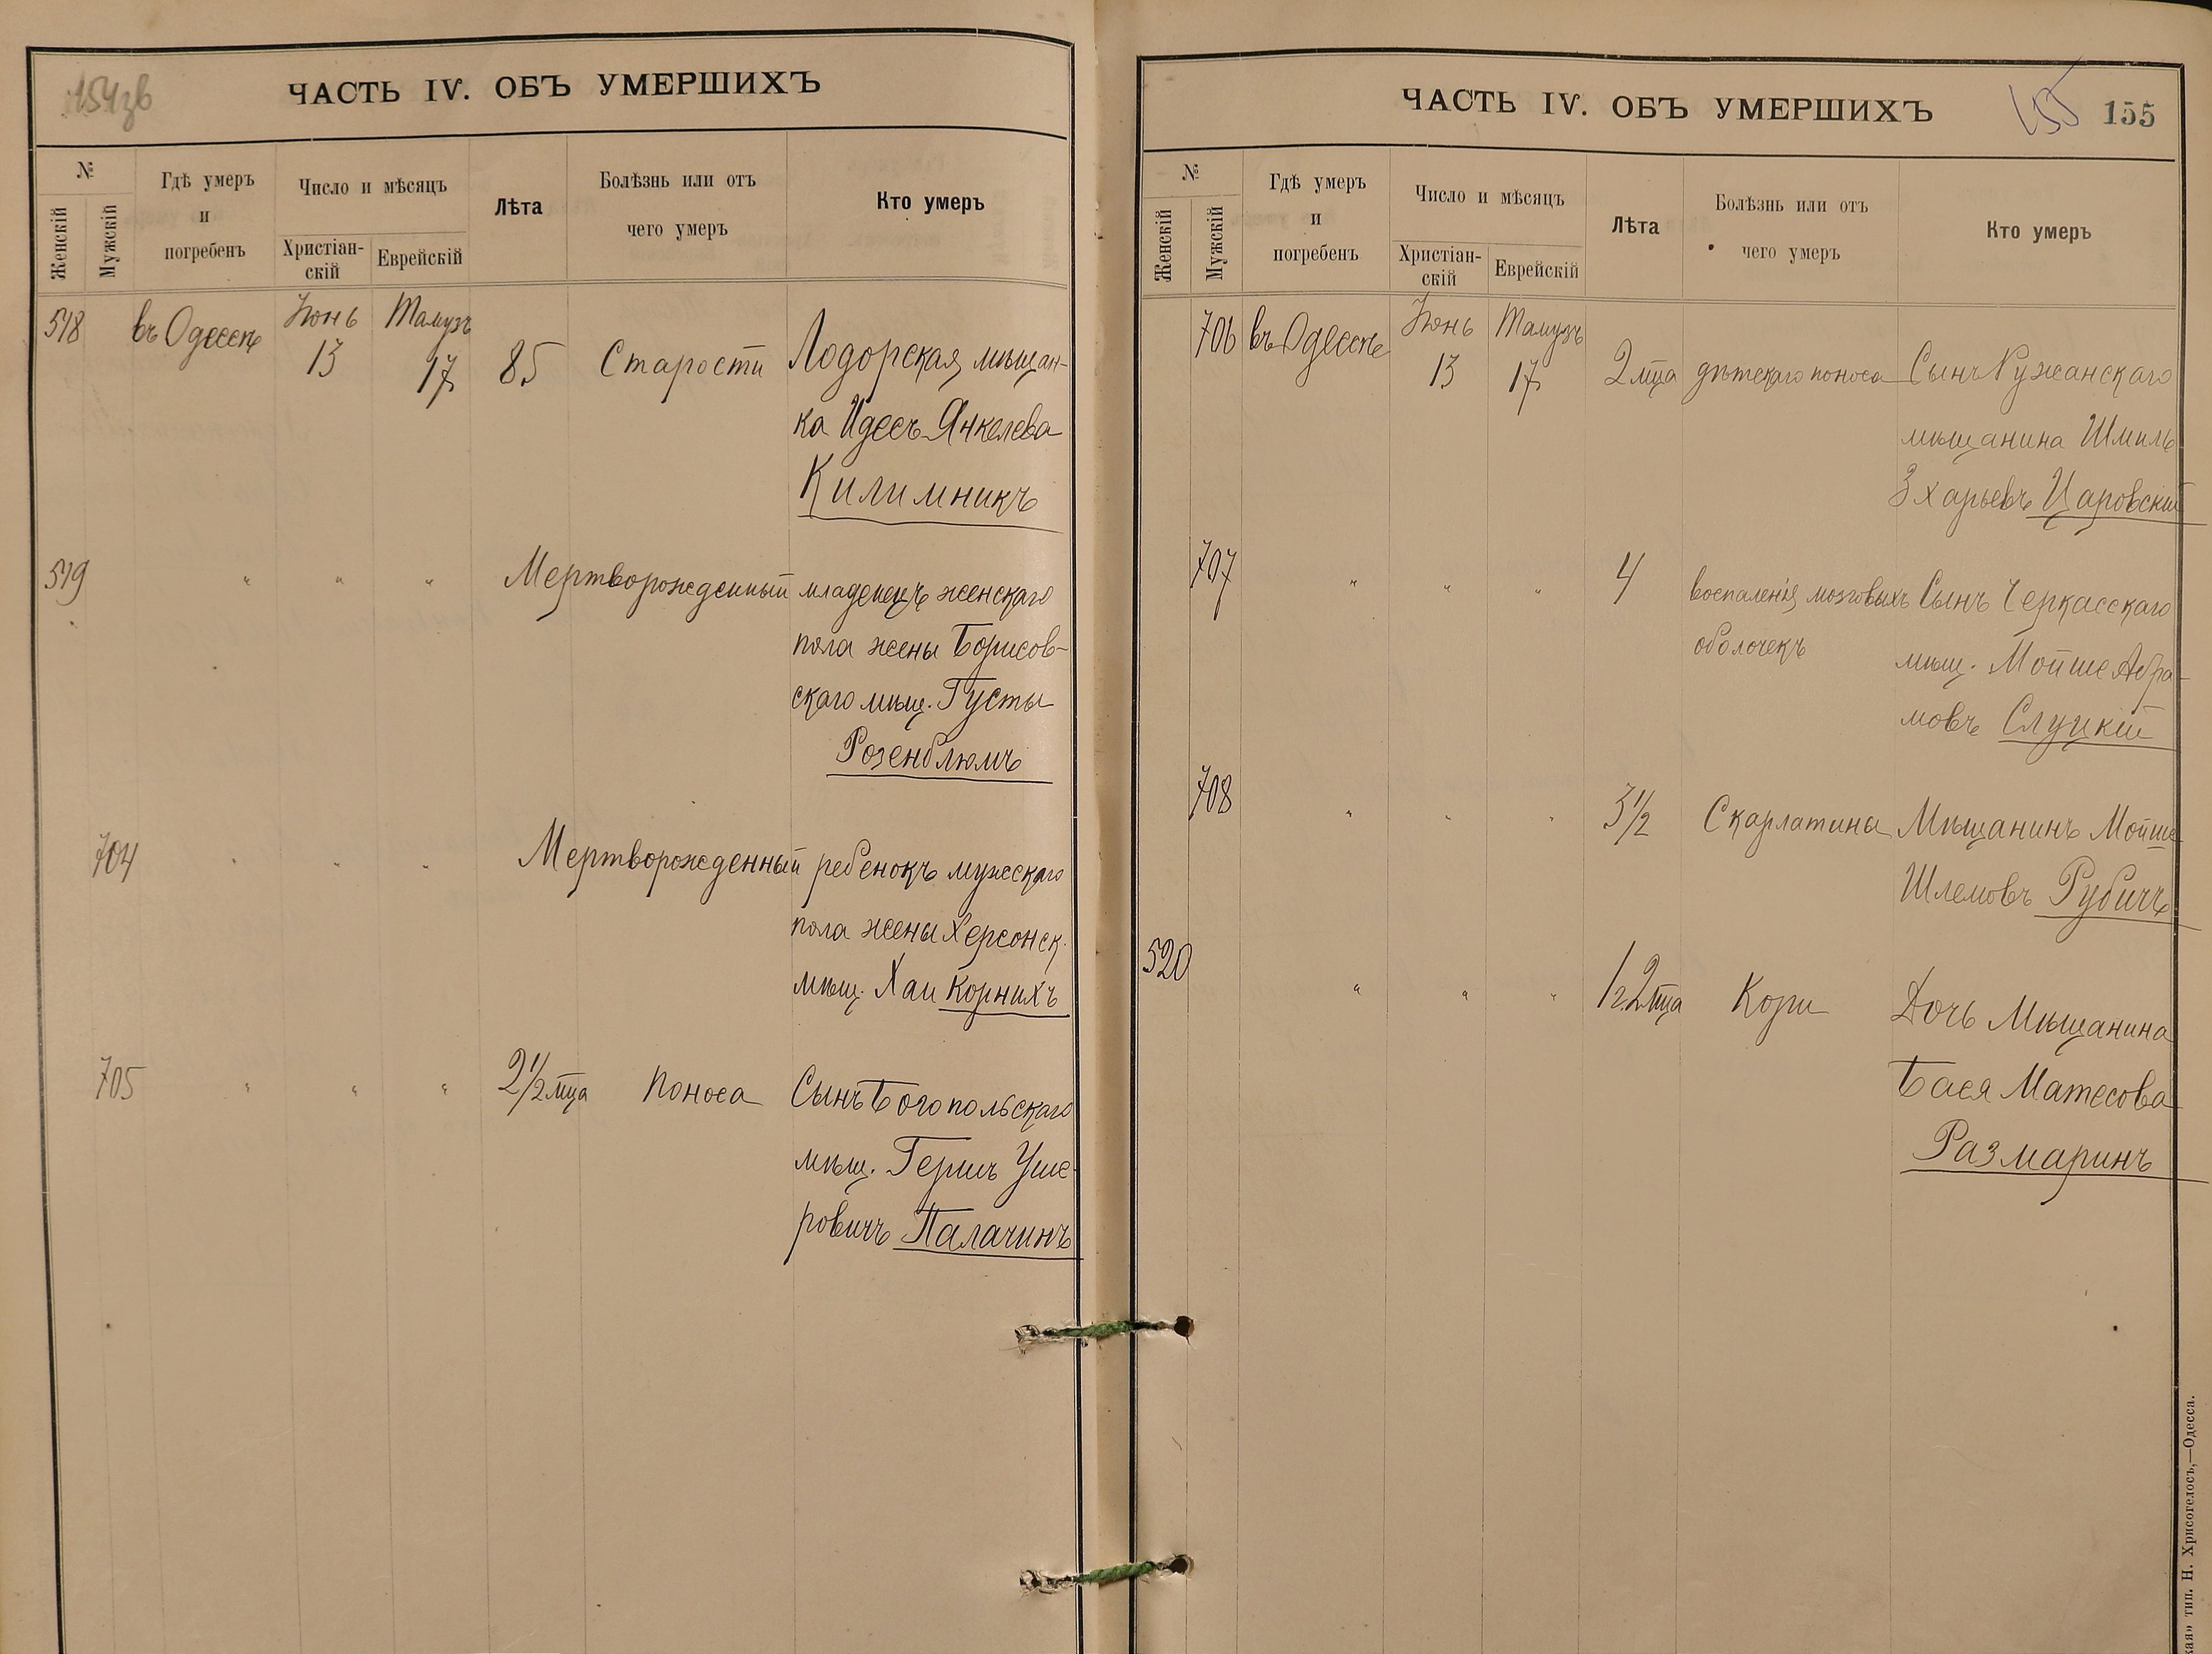 154 зв
ЧАСТЬ IV. ОБЪ УМЕРШИХЪ
№
Женскій
Мужскій
Гдѣ умеръ
и
погребенъ
Число и мѣсяцъ
Христіан-
скій
Еврейскій
Лѣта
Болѣзнь или отъ
чего умеръ
Кто умеръ
518 въ Одессѣ Іюнь 13 Тамузъ 17 85 Старости Лодорская мѣщан-
ка Идесъ Янкелева
Килимникъ
519 " " " Мертворожденный младенецъ женскаго
пола жены Борисов-
скаго мѣщ. Густы
Розенблюмъ
704 " " " Мертворожденный ребенокъ мужскаго
пола жены Херсонск.
мѣщ. Хаи Корнихъ
705 " " " 2 1/2 мца Поноса Сынъ Богопольскаго
мѣщ. Гершъ Уше-
ровичъ Палачинъ
ЧАСТЬ IV. ОБЪ УМЕРШИХЪ
155 155
№
Женскій
Мужскій
Гдѣ умеръ
и
погребенъ
Число и мѣсяцъ
Христіан-
скій
Еврейскій
Лѣта
Болѣзнь или отъ
чего умеръ
Кто умеръ
706 въ Одессѣ Іюнь 13 Тамузъ 17 2 мца дѣтскаго поноса Сынъ Ружанскаго
мѣщанина Шмиль
Зхарьевъ Царовскій
707 " " " 4 воспаленія мозговыхъ Сынъ Черкасскаго
оболочекъ мѣщ. Мойше Абра-
мовъ Слуцкій
708 " " " 3 1/2 Скарлатины Мѣщанинъ Мойше
Шлемовъ Рубичъ
520 " " " 1 г. 2 мца Кори Дочь Мѣщанина
Бася Матесова
Размаринъ
кая» тип. Н. Хрисогелосъ,—Одесса.